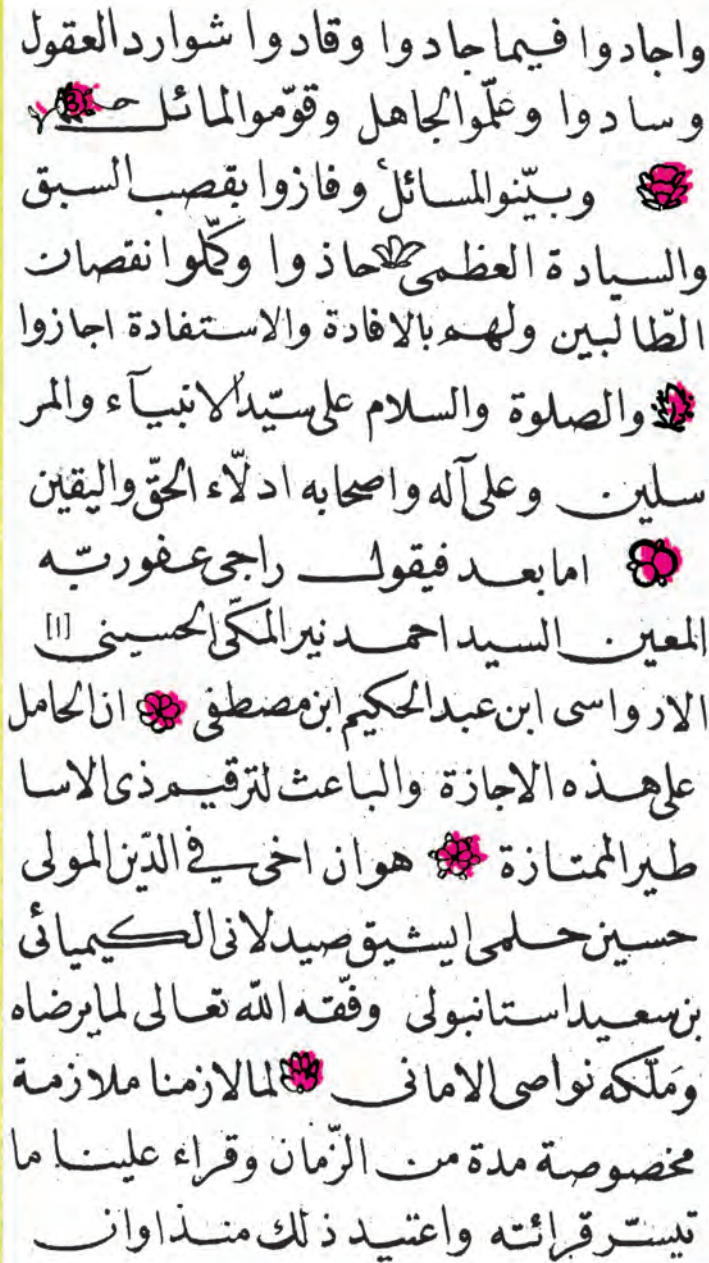 واجادوا فيما جادوا وقادوا شوارد العقول
وسادوا وعلّموالجاهل وقوّموالمائل
وبيّنوالمسائل وفازوا بقصب السبق
والسيادة العظمى حاذوا وكمّلوا نقصان
الطّالبين ولهم بالافادة والاستفادة اجازوا
والصلوة والسلام على سيّد الانبيآء والمر
سلين وعلى آله واصحابه ادلّاء الحقّ واليقين
اما بعد فيقول راجى عفو ربّه
المعين السيد احمد نير المكّى الحسينى [١]
الارواسى ابن عبد الحكيم ابن مصطفى ان الحامل
على هذه الاجازة والباعث لترقيم ذى الاسا
طير الممتازة هو ان اخى فے الدّين المولى
حسين حلمى ايشيق صيدلانى الكيميائى
بن سعيد استانبولى وفّقه الله تعالى لما يرضاه
ومَلّكه نواصى الامانى لمالازمنا ملازمة
مخصوصة مدة من الزّمان وقراء علينا ما
تيسّر قرائته واعتيد ذلك منذ اوان